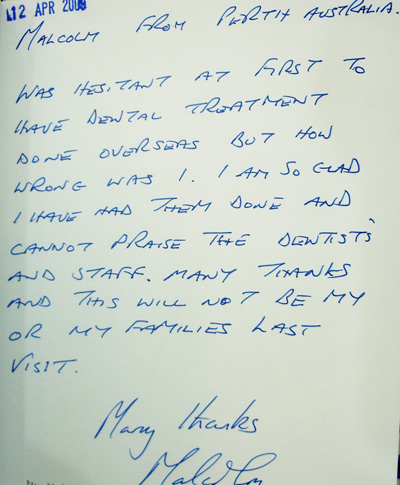 12 APR 2008
MALCOLM FROM PERTH AUSTRALIA.
WAS HESITANT AT FIRST TO
HAVE DENTAL TREATMENT
DONE OVERSEAS BUT HOW
WRONG WAS I. I AM SO GLAD
I HAVE HAD THEM DONE AND
CANNOT PRAISE THE DENTISTS
AND STAFF. MANY THANKS
AND THIS WILL NOT BE MY
OR MY FAMILIES LAST
VISIT.
Many thanks
Malcolm